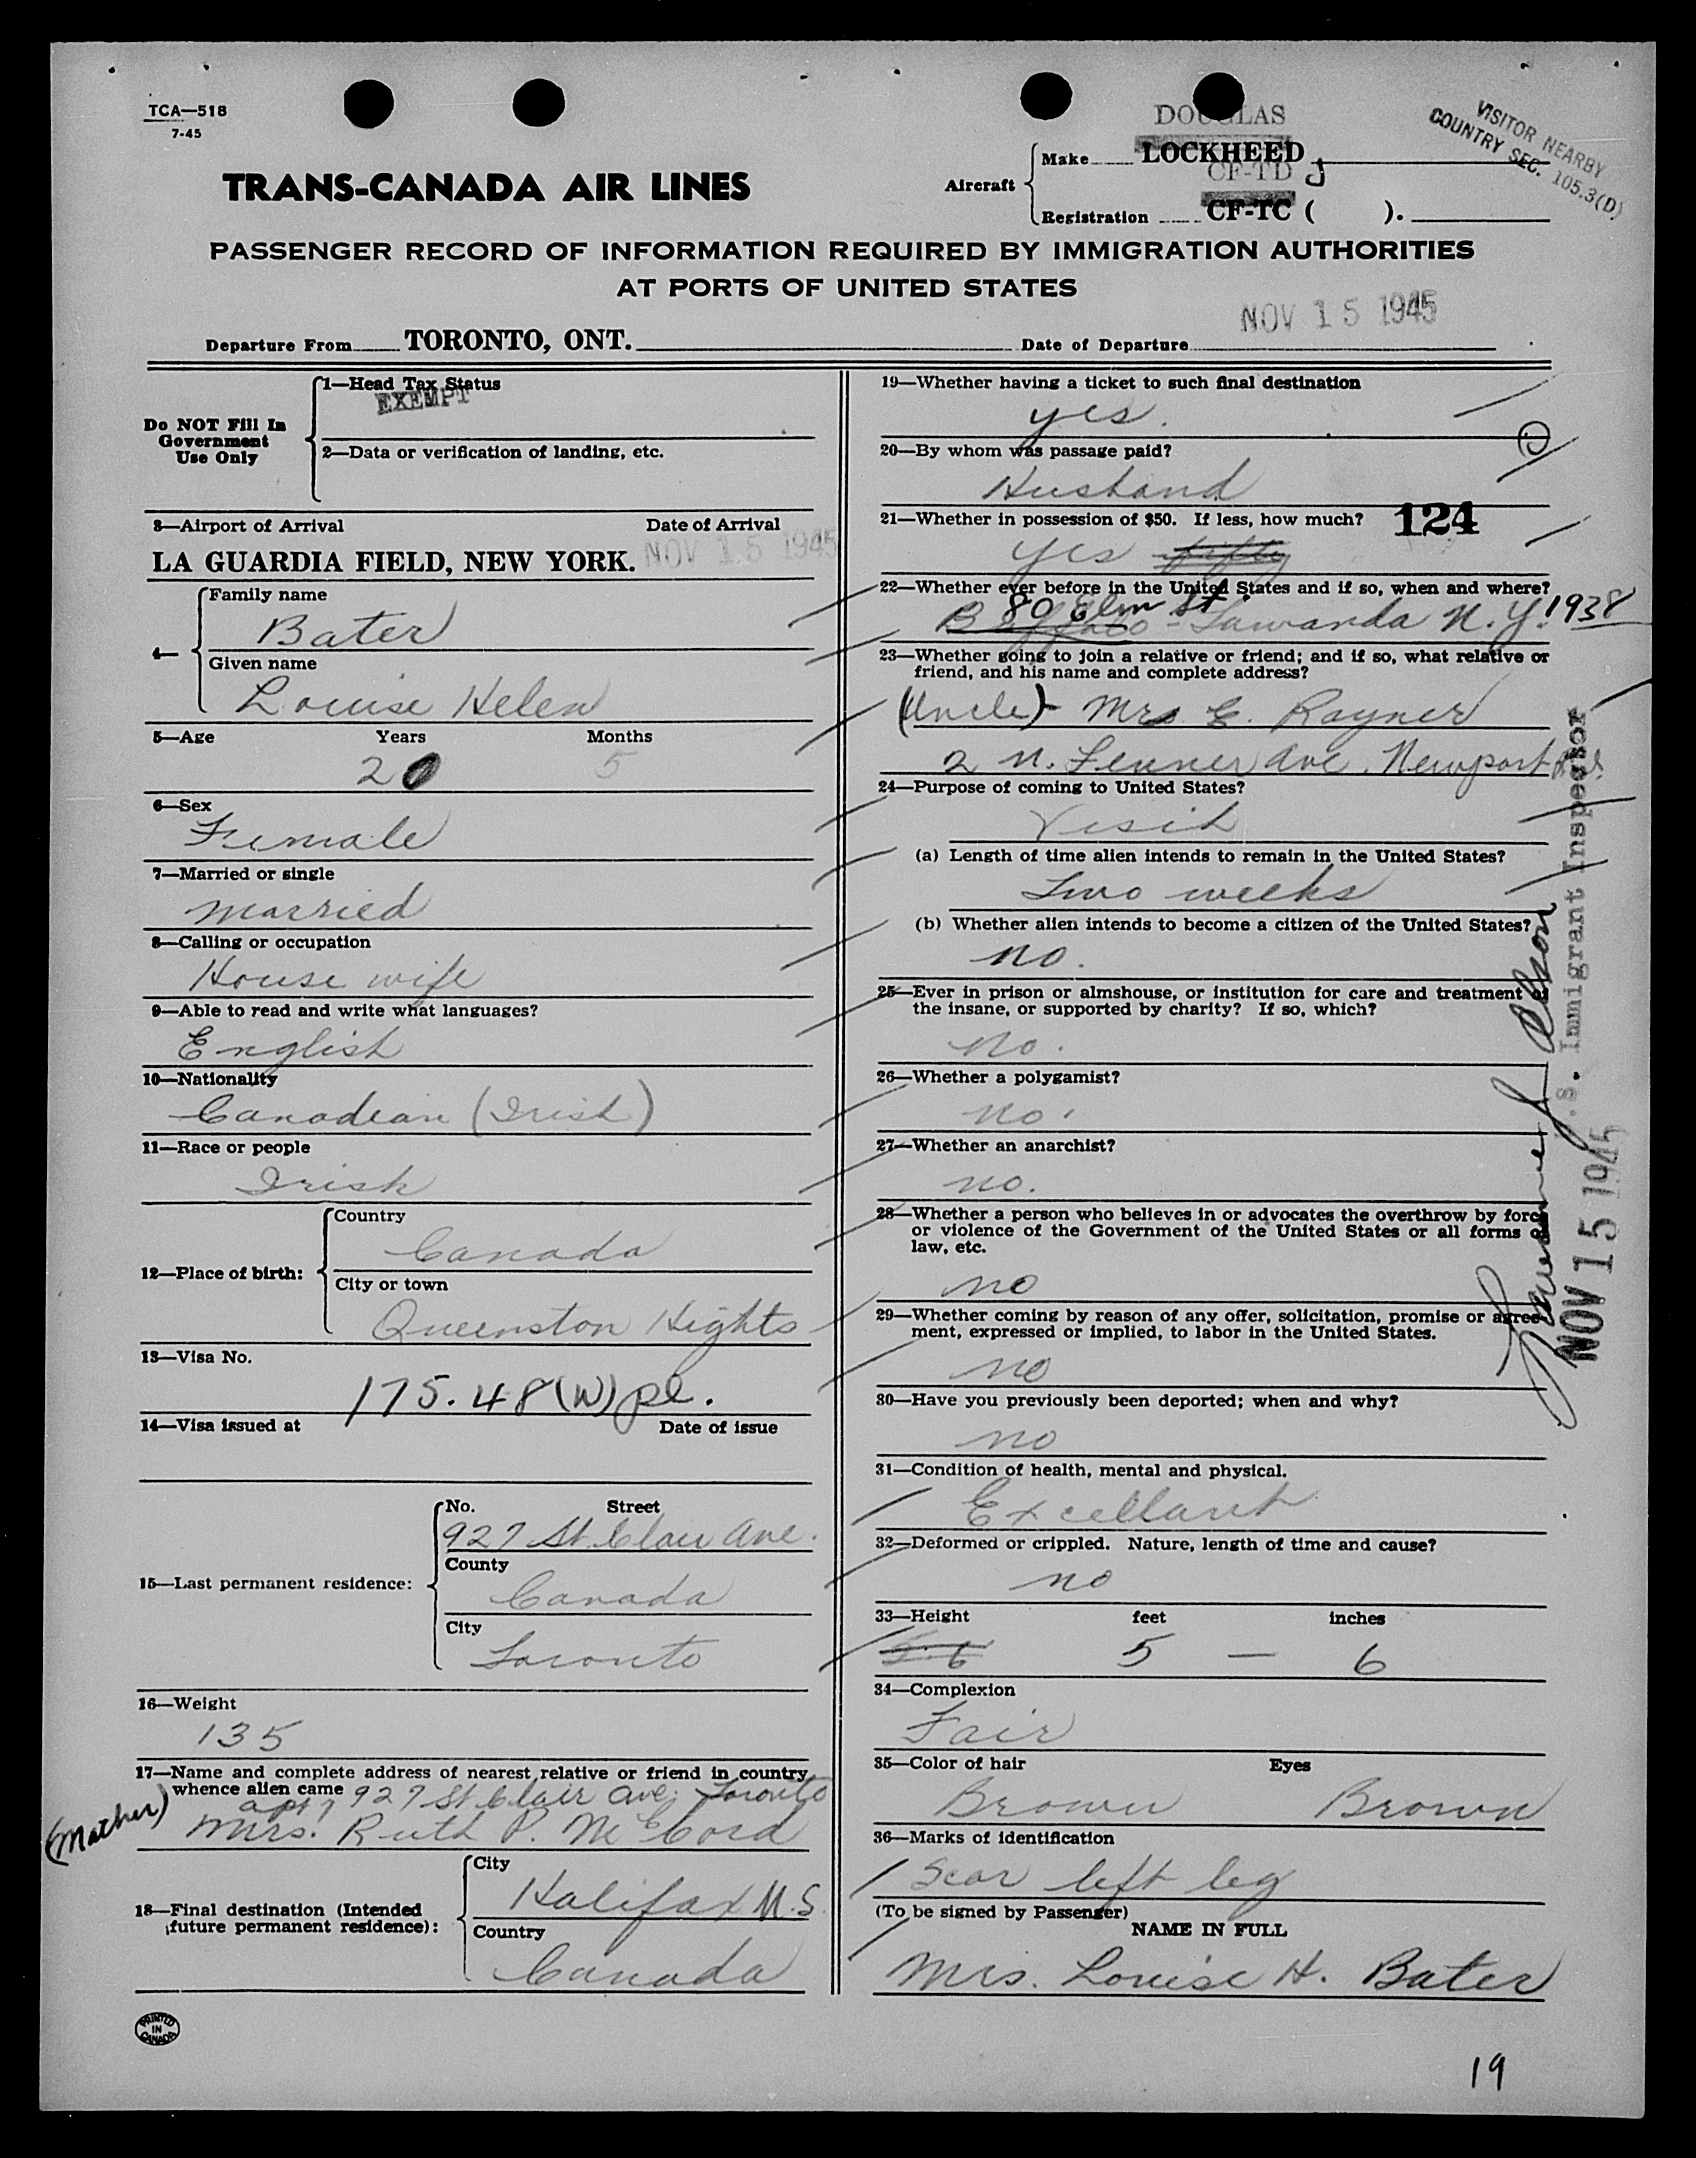 TCA—518
7-45
DOUGLAS
VISITOR NEARBY
COUNTRY SEC. 105.3(D)
TRANS-CANADA AIR LINES
Aircraft
Make LOCKHEED
CF-TD J
Registration CF-TC ( ).
PASSENGER RECORD OF INFORMATION REQUIRED BY IMMIGRATION AUTHORITIES
AT PORTS OF UNITED STATES
NOV 15 1945
Departure From TORONTO, ONT. Date of Departure
Do NOT Fill In
Government
Use Only
1—Head Tax Status
EXEMPT
2—Data or verification of landing, etc.
3—Airport of Arrival Date of Arrival
LA GUARDIA FIELD, NEW YORK. NOV 15 1945
4—
Family name
Bater
Given name
Louise Helen
5—Age Years Months
20 5
6—Sex
Female
7—Married or single
married
8—Calling or occupation
House wife
9—Able to read and write what languages?
English
10—Nationality
Canadian (Irish)
11—Race or people
Irish
12—Place of birth:
Country
Canada
City or town
Queenston Hights
13—Visa No.
175.48(W) pl.
14—Visa issued at Date of issue
15—Last permanent residence:
No. Street
927 St. Clair Ave.
County
Canada
City
Toronto
16—Weight
135
17—Name and complete address of nearest relative or friend in country
whence alien came 927 St. Clair Ave. Toronto
apt 7
(Mother) Mrs. Ruth P. McCord
18—Final destination (Intended
future permanent residence):
City
Halifax N.S.
Country
Canada
PRINTED
IN
CANADA
19—Whether having a ticket to such final destination
yes.
20—By whom was passage paid?
Husband
21—Whether in possession of $50. If less, how much? 124
yes fifty
22—Whether ever before in the United States and if so, when and where?
80 Elm St.
Buffalo - Gawanda N.Y. 1938
23—Whether going to join a relative or friend; and if so, what relative or
friend, and his name and complete address?
(Uncle) - Mrs E. Rayner
2 N. Fenner Ave. Newport R.I.
24—Purpose of coming to United States?
Visit
(a) Length of time alien intends to remain in the United States?
Two weeks
(b) Whether alien intends to become a citizen of the United States?
no.
25—Ever in prison or almshouse, or institution for care and treatment of
the insane, or supported by charity? If so, which?
no.
26—Whether a polygamist?
no.
27—Whether an anarchist?
no.
28—Whether a person who believes in or advocates the overthrow by force
or violence of the Government of the United States or all forms of
law, etc.
no
29—Whether coming by reason of any offer, solicitation, promise or agree-
ment, expressed or implied, to labor in the United States.
no
30—Have you previously been deported; when and why?
no
31—Condition of health, mental and physical.
Excellant
32—Deformed or crippled. Nature, length of time and cause?
no
33—Height feet inches
5-6 5 — 6
34—Complexion
Fair
35—Color of hair Eyes
Brown Brown
36—Marks of identification
Scar left leg
(To be signed by Passenger)
NAME IN FULL
Mrs. Louise H. Bater
U.S. Immigrant Inspector
NOV 15 1945
19